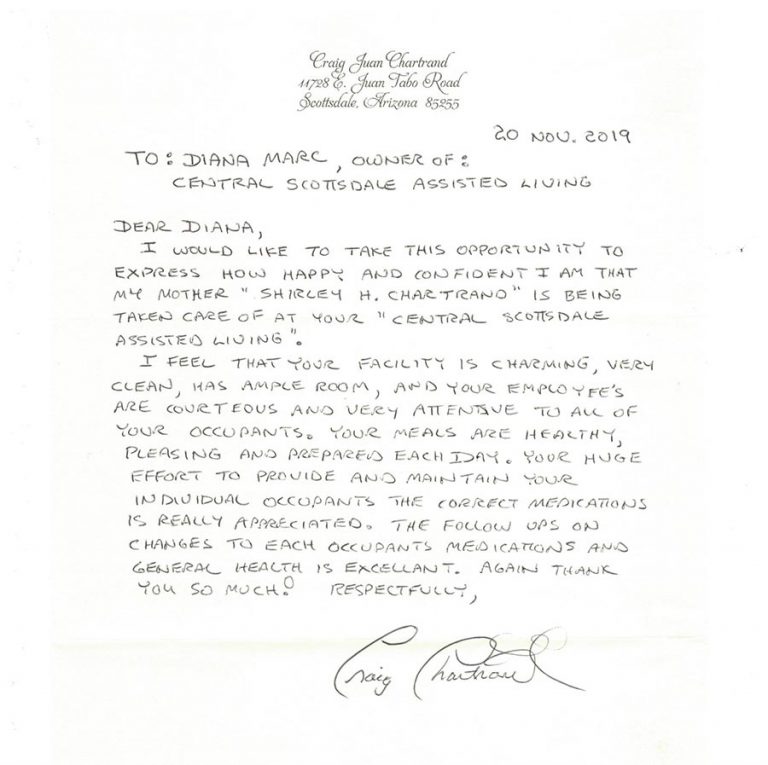 Craig Juan Chartrand
11728 E. Juan Tabo Road
Scottsdale, Arizona 85255
20 NOV. 2019
TO: DIANA MARC, OWNER OF:
CENTRAL SCOTTSDALE ASSISTED LIVING
DEAR DIANA,
I WOULD LIKE TO TAKE THIS OPPORTUNITY TO
EXPRESS HOW HAPPY AND CONFIDENT I AM THAT
MY MOTHER "SHIRLEY H. CHARTRAND" IS BEING
TAKEN CARE OF AT YOUR "CENTRAL SCOTTSDALE
ASSISTED LIVING".
I FEEL THAT YOUR FACILITY IS CHARMING, VERY
CLEAN, HAS AMPLE ROOM, AND YOUR EMPLOYEE'S
ARE COURTEOUS AND VERY ATTENTIVE TO ALL OF
YOUR OCCUPANTS. YOUR MEALS ARE HEALTHY,
PLEASING AND PREPARED EACH DAY. YOUR HUGE
EFFORT TO PROVIDE AND MAINTAIN YOUR
INDIVIDUAL OCCUPANTS THE CORRECT MEDICATIONS
IS REALLY APPRECIATED. THE FOLLOW UPS ON
CHANGES TO EACH OCCUPANTS MEDICATIONS AND
GENERAL HEALTH IS EXCELLANT. AGAIN THANK
YOU SO MUCH! RESPECTFULLY,
Craig Chartrand